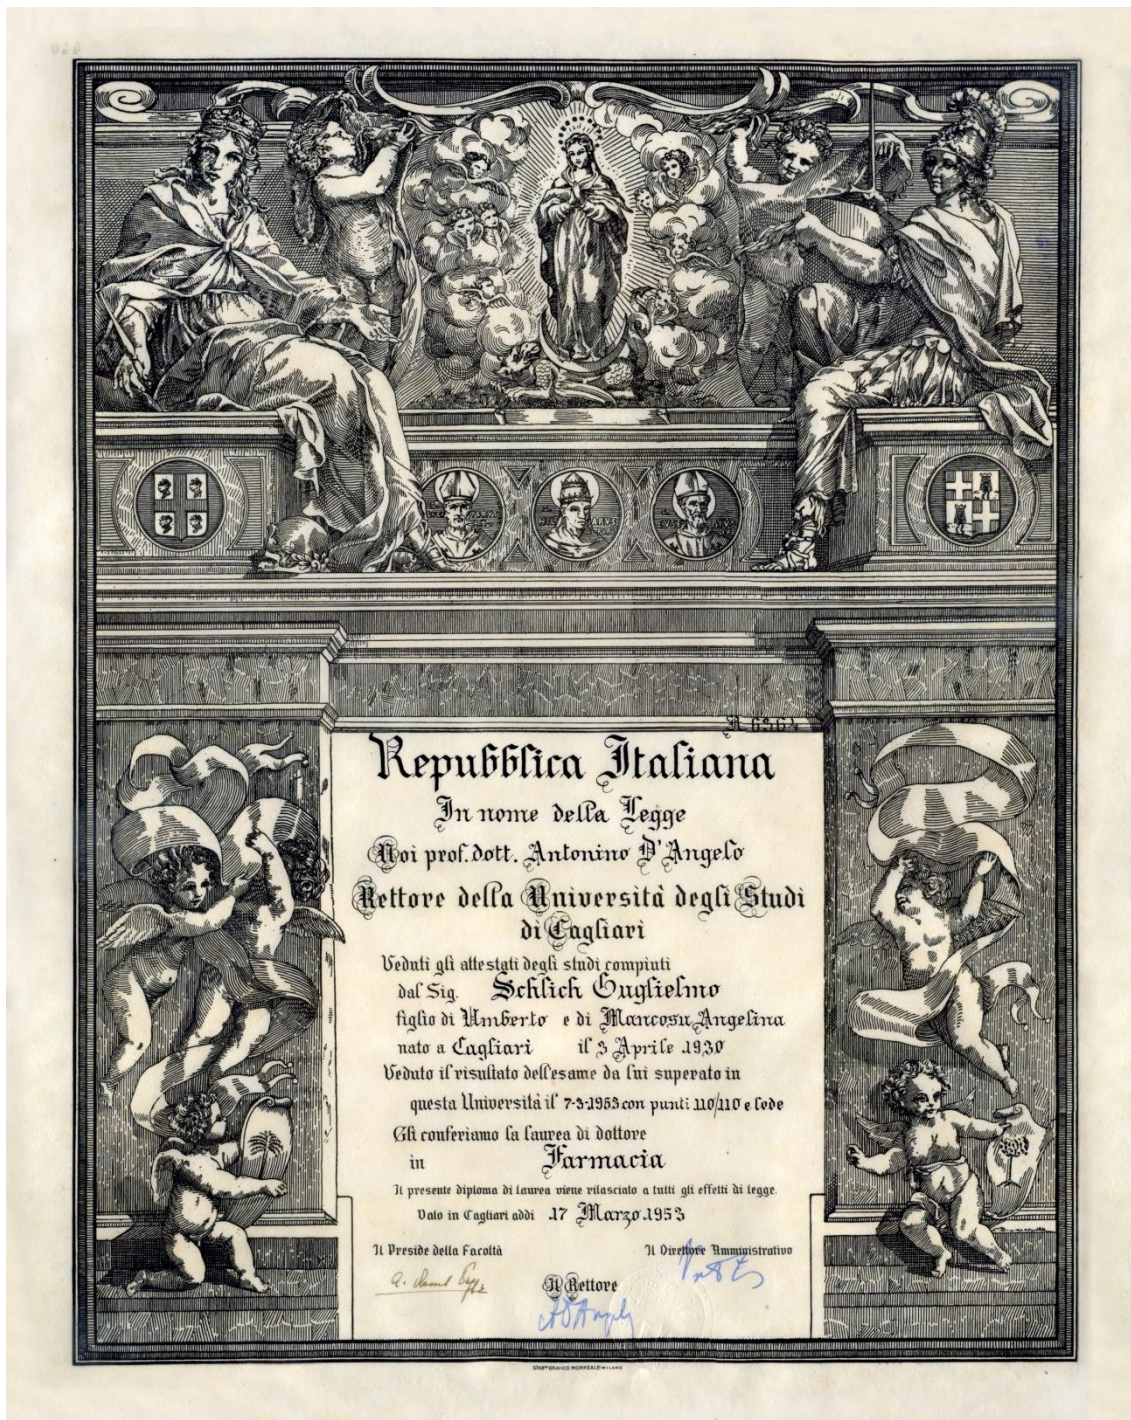 A 6364
Repubblica Italiana
In nome della Legge
Noi prof. dott. Antonino D'Angelo
Rettore della Università degli Studi
di Cagliari
Veduti gli attestati degli studi compiuti
dal Sig. Schlich Guglielmo
figlio di Umberto e di Mancosu Angelina
nato a Cagliari il 3 Aprile 1930
Veduto il risultato dell'esame da lui superato in
questa Università il 7-3-1953 con punti 110/110 e lode
Gli conferiamo la laurea di dottore
in Farmacia
Il presente diploma di laurea viene rilasciato a tutti gli effetti di legge.
Dato in Cagliari addì 17 Marzo 1953
Il Preside della Facoltà Il Direttore Amministrativo
Il Rettore
STABᵀᴼ GRAFICO MORREALE-MILANO